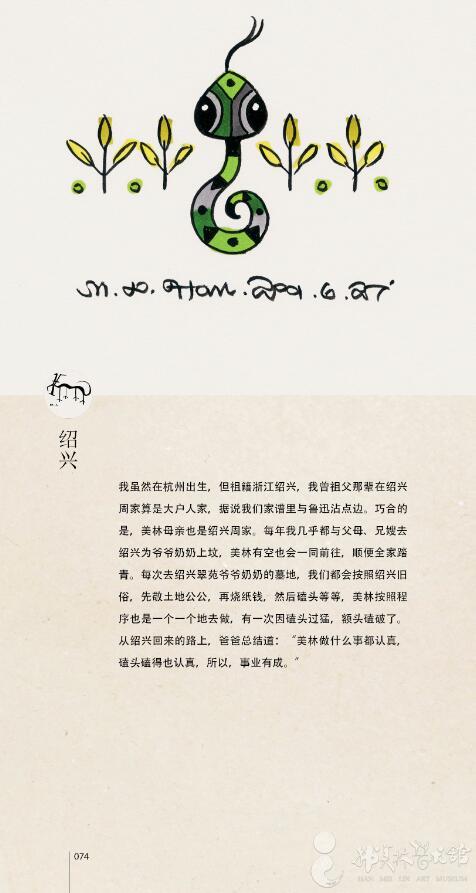 绍兴
我虽然在杭州出生，但祖籍浙江绍兴，我曾祖父那辈在绍兴
周家算是大户人家，据说我们家谱里与鲁迅沾点边。巧合的
是，美林母亲也是绍兴周家。每年我几乎都与父母、兄嫂去
绍兴为爷爷奶奶上坟，美林有空也会一同前往，顺便全家踏
青。每次去绍兴翠苑爷爷奶奶的墓地，我们都会按照绍兴旧
俗，先敬土地公公，再烧纸钱，然后磕头等等，美林按照程
序也是一个一个地去做，有一次因磕头过猛，额头磕破了。
从绍兴回来的路上，爸爸总结道：“美林做什么事都认真，
磕头磕得也认真，所以，事业有成。”
074
韩美林艺术馆
HAN MEI LIN ART MUSEUM